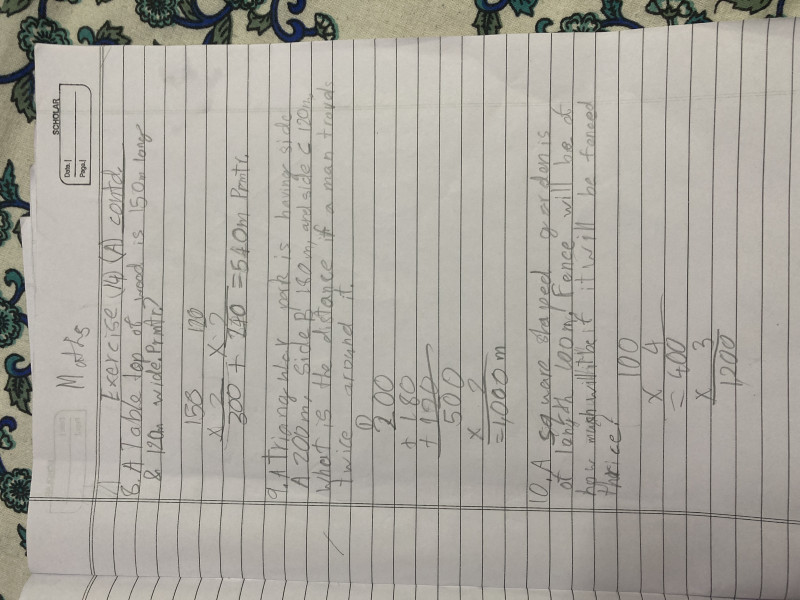 SCHOLAR
Date
Page
Maths
Exercise 14 (A) contd
8. A Table top of wood is 150m long
& 120m wide. Prmtr?
150 120
x 2 x 2
300 + 240 = 540m Prmtr.
9. A triangular park is having side
A 200m, side B 180m, and side C 120m,
What is the distance if a man travels
twice around it.
200
+ 180
+ 120
500
x 2
= 1000 m
10. A square shaped garden is
of length 100m, Fence will be of
how much will it be if it will be fenced
thrice?
100
x 4
= 400
x 3
1200